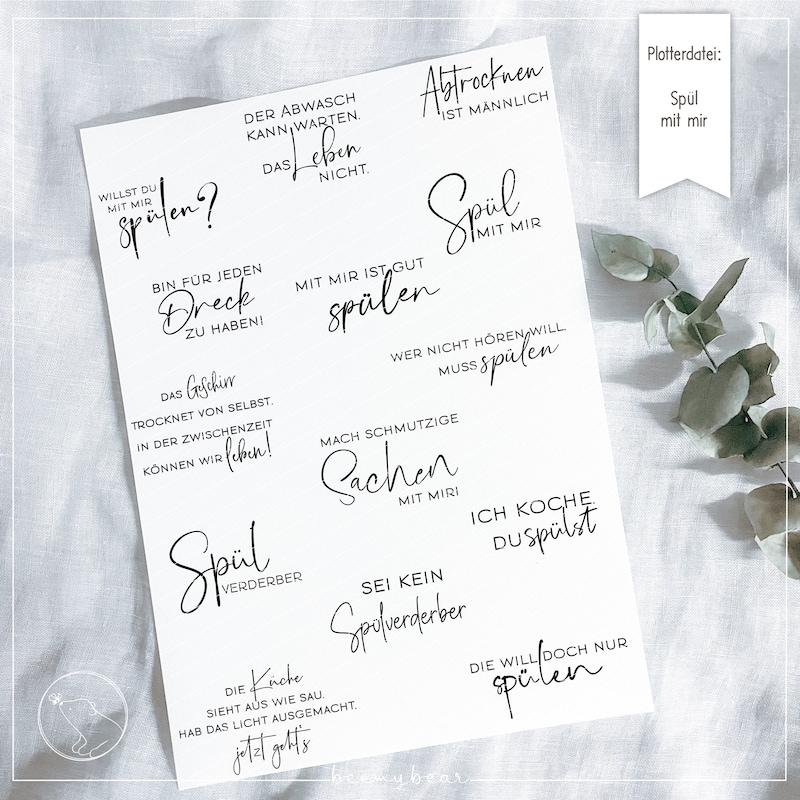 Plotterdatei:
Spül
mit mir
Abtrocknen
IST MÄNNLICH
DER ABWASCH
KANN WARTEN.
DAS Leben
NICHT.
WILLST DU
MIT MIR
spülen?
Spül
MIT MIR
BIN FÜR JEDEN
Dreck
ZU HABEN!
MIT MIR IST GUT
spülen
WER NICHT HÖREN WILL
MUSS spülen
DAS Geschirr
TROCKNET VON SELBST.
IN DER ZWISCHENZEIT
KÖNNEN WIR leben!
MACH SCHMUTZIGE
Sachen
MIT MIR!
ICH KOCHE.
DU spülst
Spül
VERDERBER
SEI KEIN
Spülverderber
DIE WILL DOCH NUR
spülen
DIE Küche
SIEHT AUS WIE SAU.
HAB DAS LICHT AUSGEMACHT.
jetzt geht's
beemybear